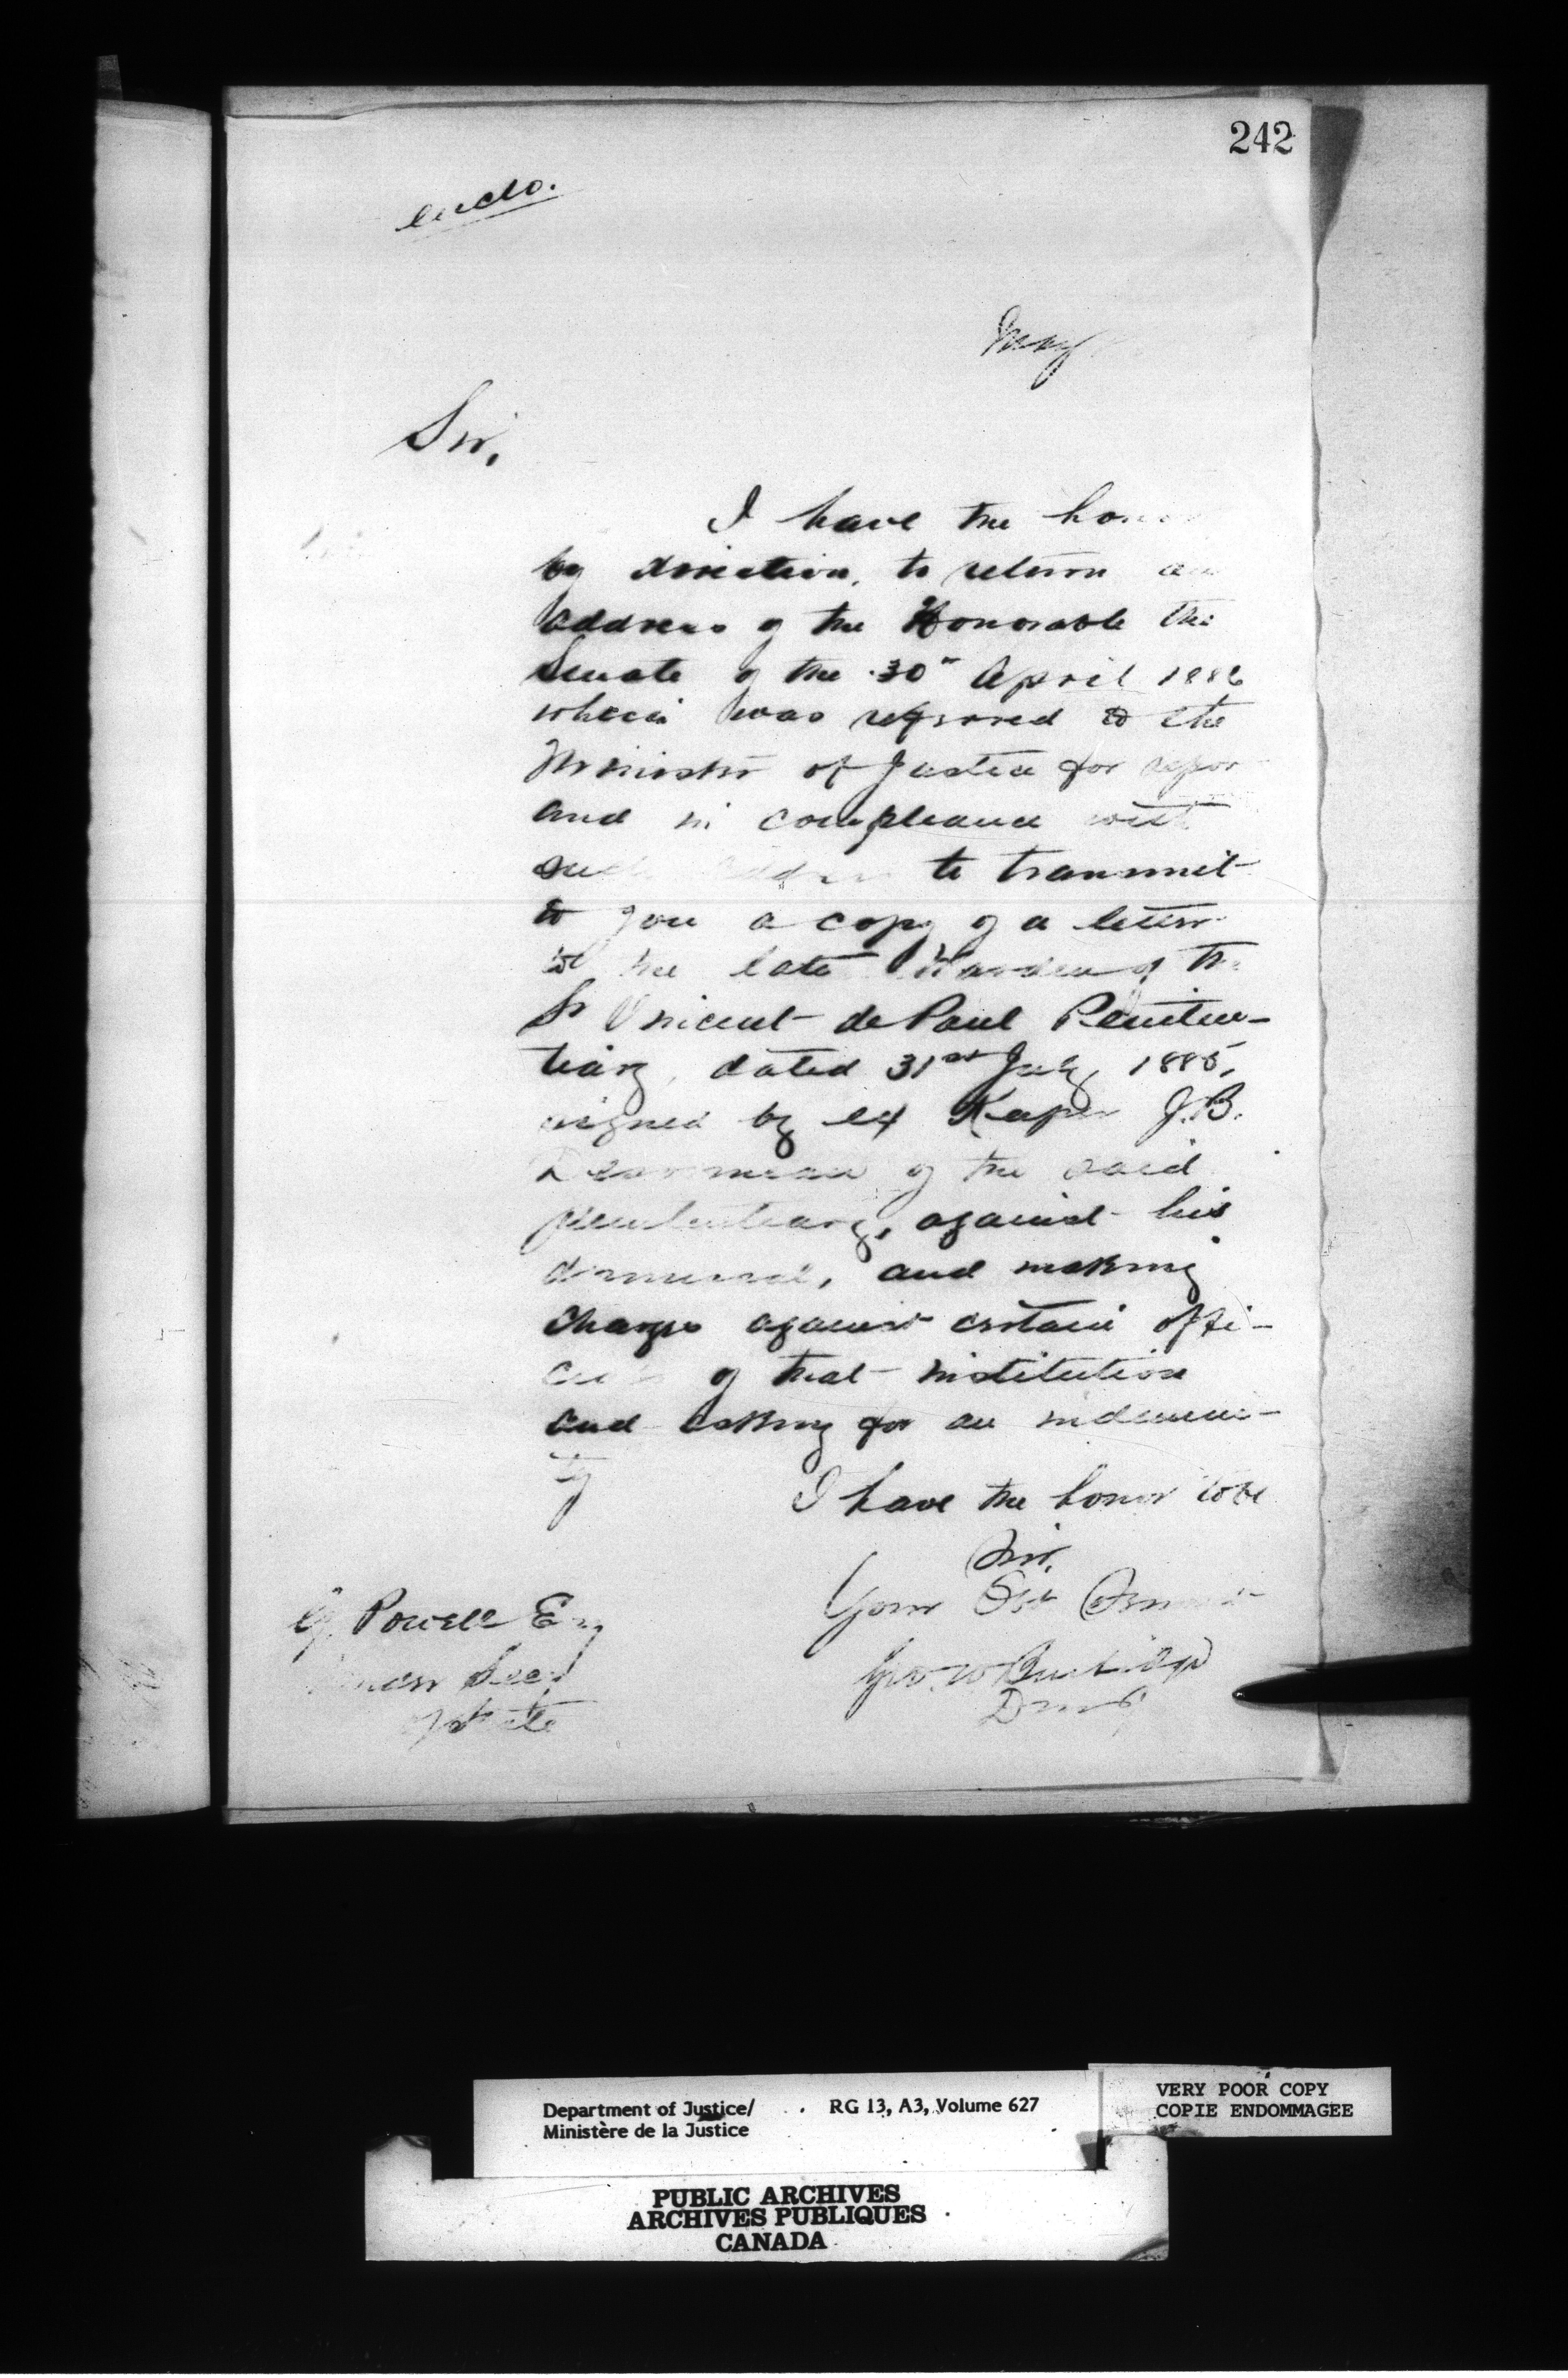 242
enclo.
May
Sir,
I have the honor
by direction, to return an
address of the Honorable the
Senate of the 30th April 1886
which was referred to the
Minister of Justice for repor
and in compliance with
such address to transmit
to you a copy of a letter
to the late Warden of the
St Vincent de Paul Peniten-
tiary, dated 31st July 1885,
signed by ex Keeper J.B.
of the said
penitentiary, against his
dismissal, and making
charges against certain offi-
cers of that institution
and asking for an indemni-
ty
I have the honor to be
Sir,
Your Obt Servant
Geo. W Burbidge
D.M.J.
G. Powell Esq
Under Secy
of State
Department of Justice/
Ministère de la Justice
RG 13, A3, Volume 627
VERY POOR COPY
COPIE ENDOMMAGEE
PUBLIC ARCHIVES
ARCHIVES PUBLIQUES
CANADA